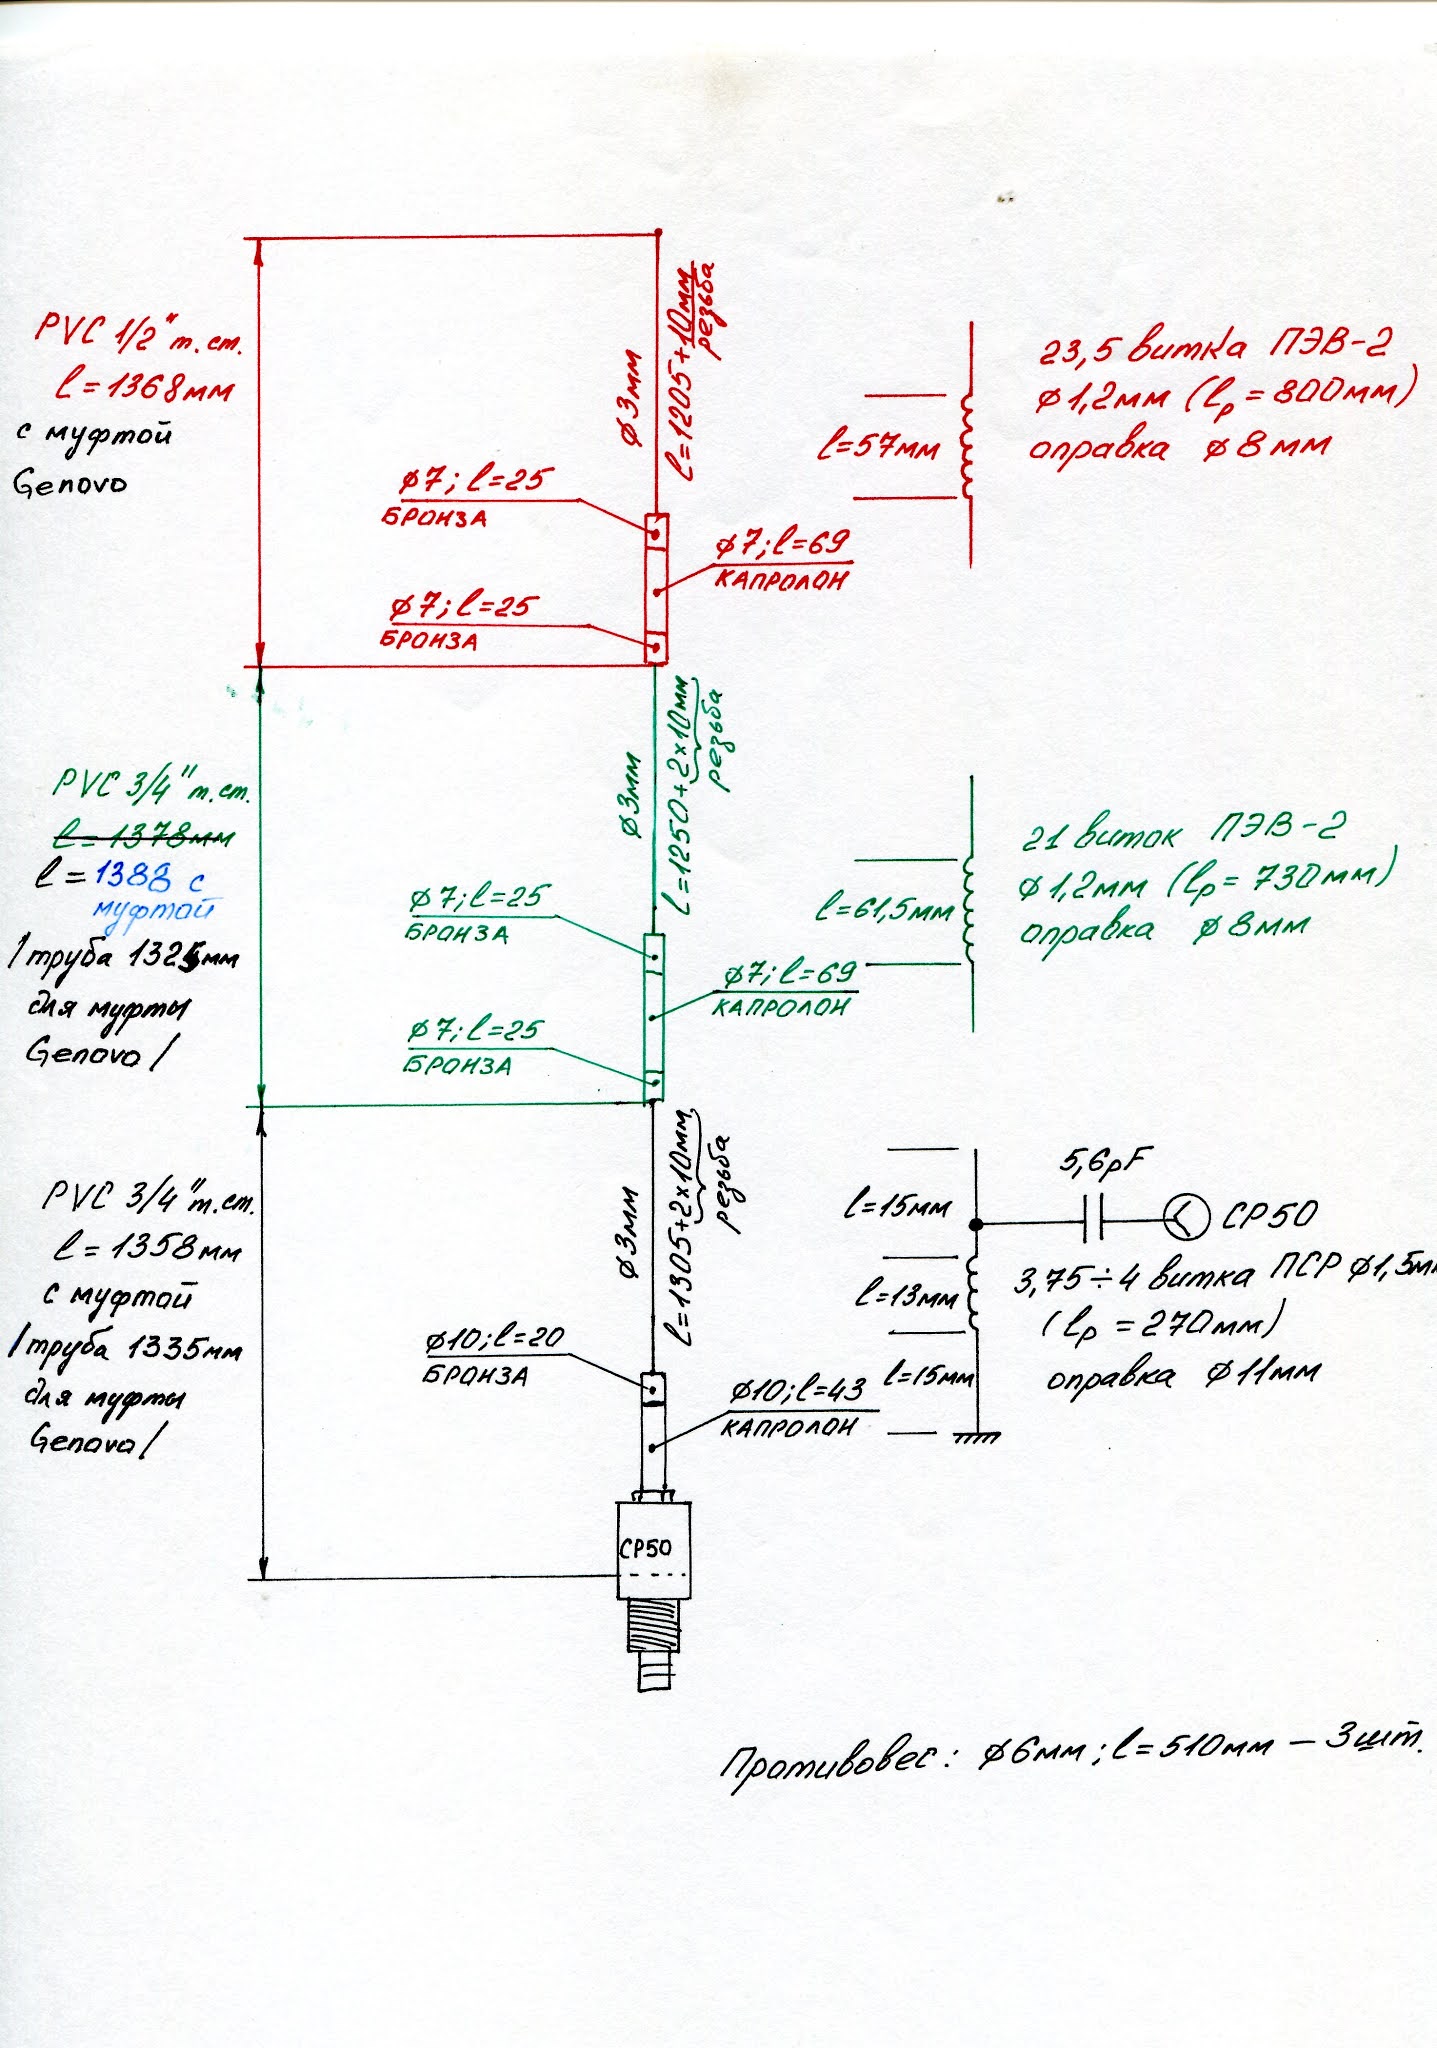 PVC 1/2" т.ст.
l=1368мм
с муфтой
Genovo
ø3мм
l=1205+10мм
резьба
ø7; l=25
БРОНЗА
ø7; l=69
КАПРОЛОН
ø7; l=25
БРОНЗА
l=57мм
23,5 витка ПЭВ-2
ø1,2мм (lр=800мм)
оправка ø8мм
PVC 3/4" т.ст.
l=1378мм
l=1388 с
муфтой
/труба 1325мм
для муфты
Genovo/
ø3мм
l=1250+2×10мм
резьба
ø7; l=25
БРОНЗА
ø7; l=69
КАПРОЛОН
ø7; l=25
БРОНЗА
l=61,5мм
21 виток ПЭВ-2
ø1,2мм (lр=730мм)
оправка ø8мм
PVC 3/4" т.ст.
l=1358мм
с муфтой
/труба 1335мм
для муфты
Genovo/
ø3мм
l=1305+2×10мм
резьба
ø10; l=20
БРОНЗА
ø10; l=43
КАПРОЛОН
СР50
5,6pF
СР50
l=15мм
l=13мм
l=15мм
3,75÷4 витка ПСР ø1,5мм
(lр=270мм)
оправка ø11мм
Противовес: ø6мм; l=510мм – 3шт.